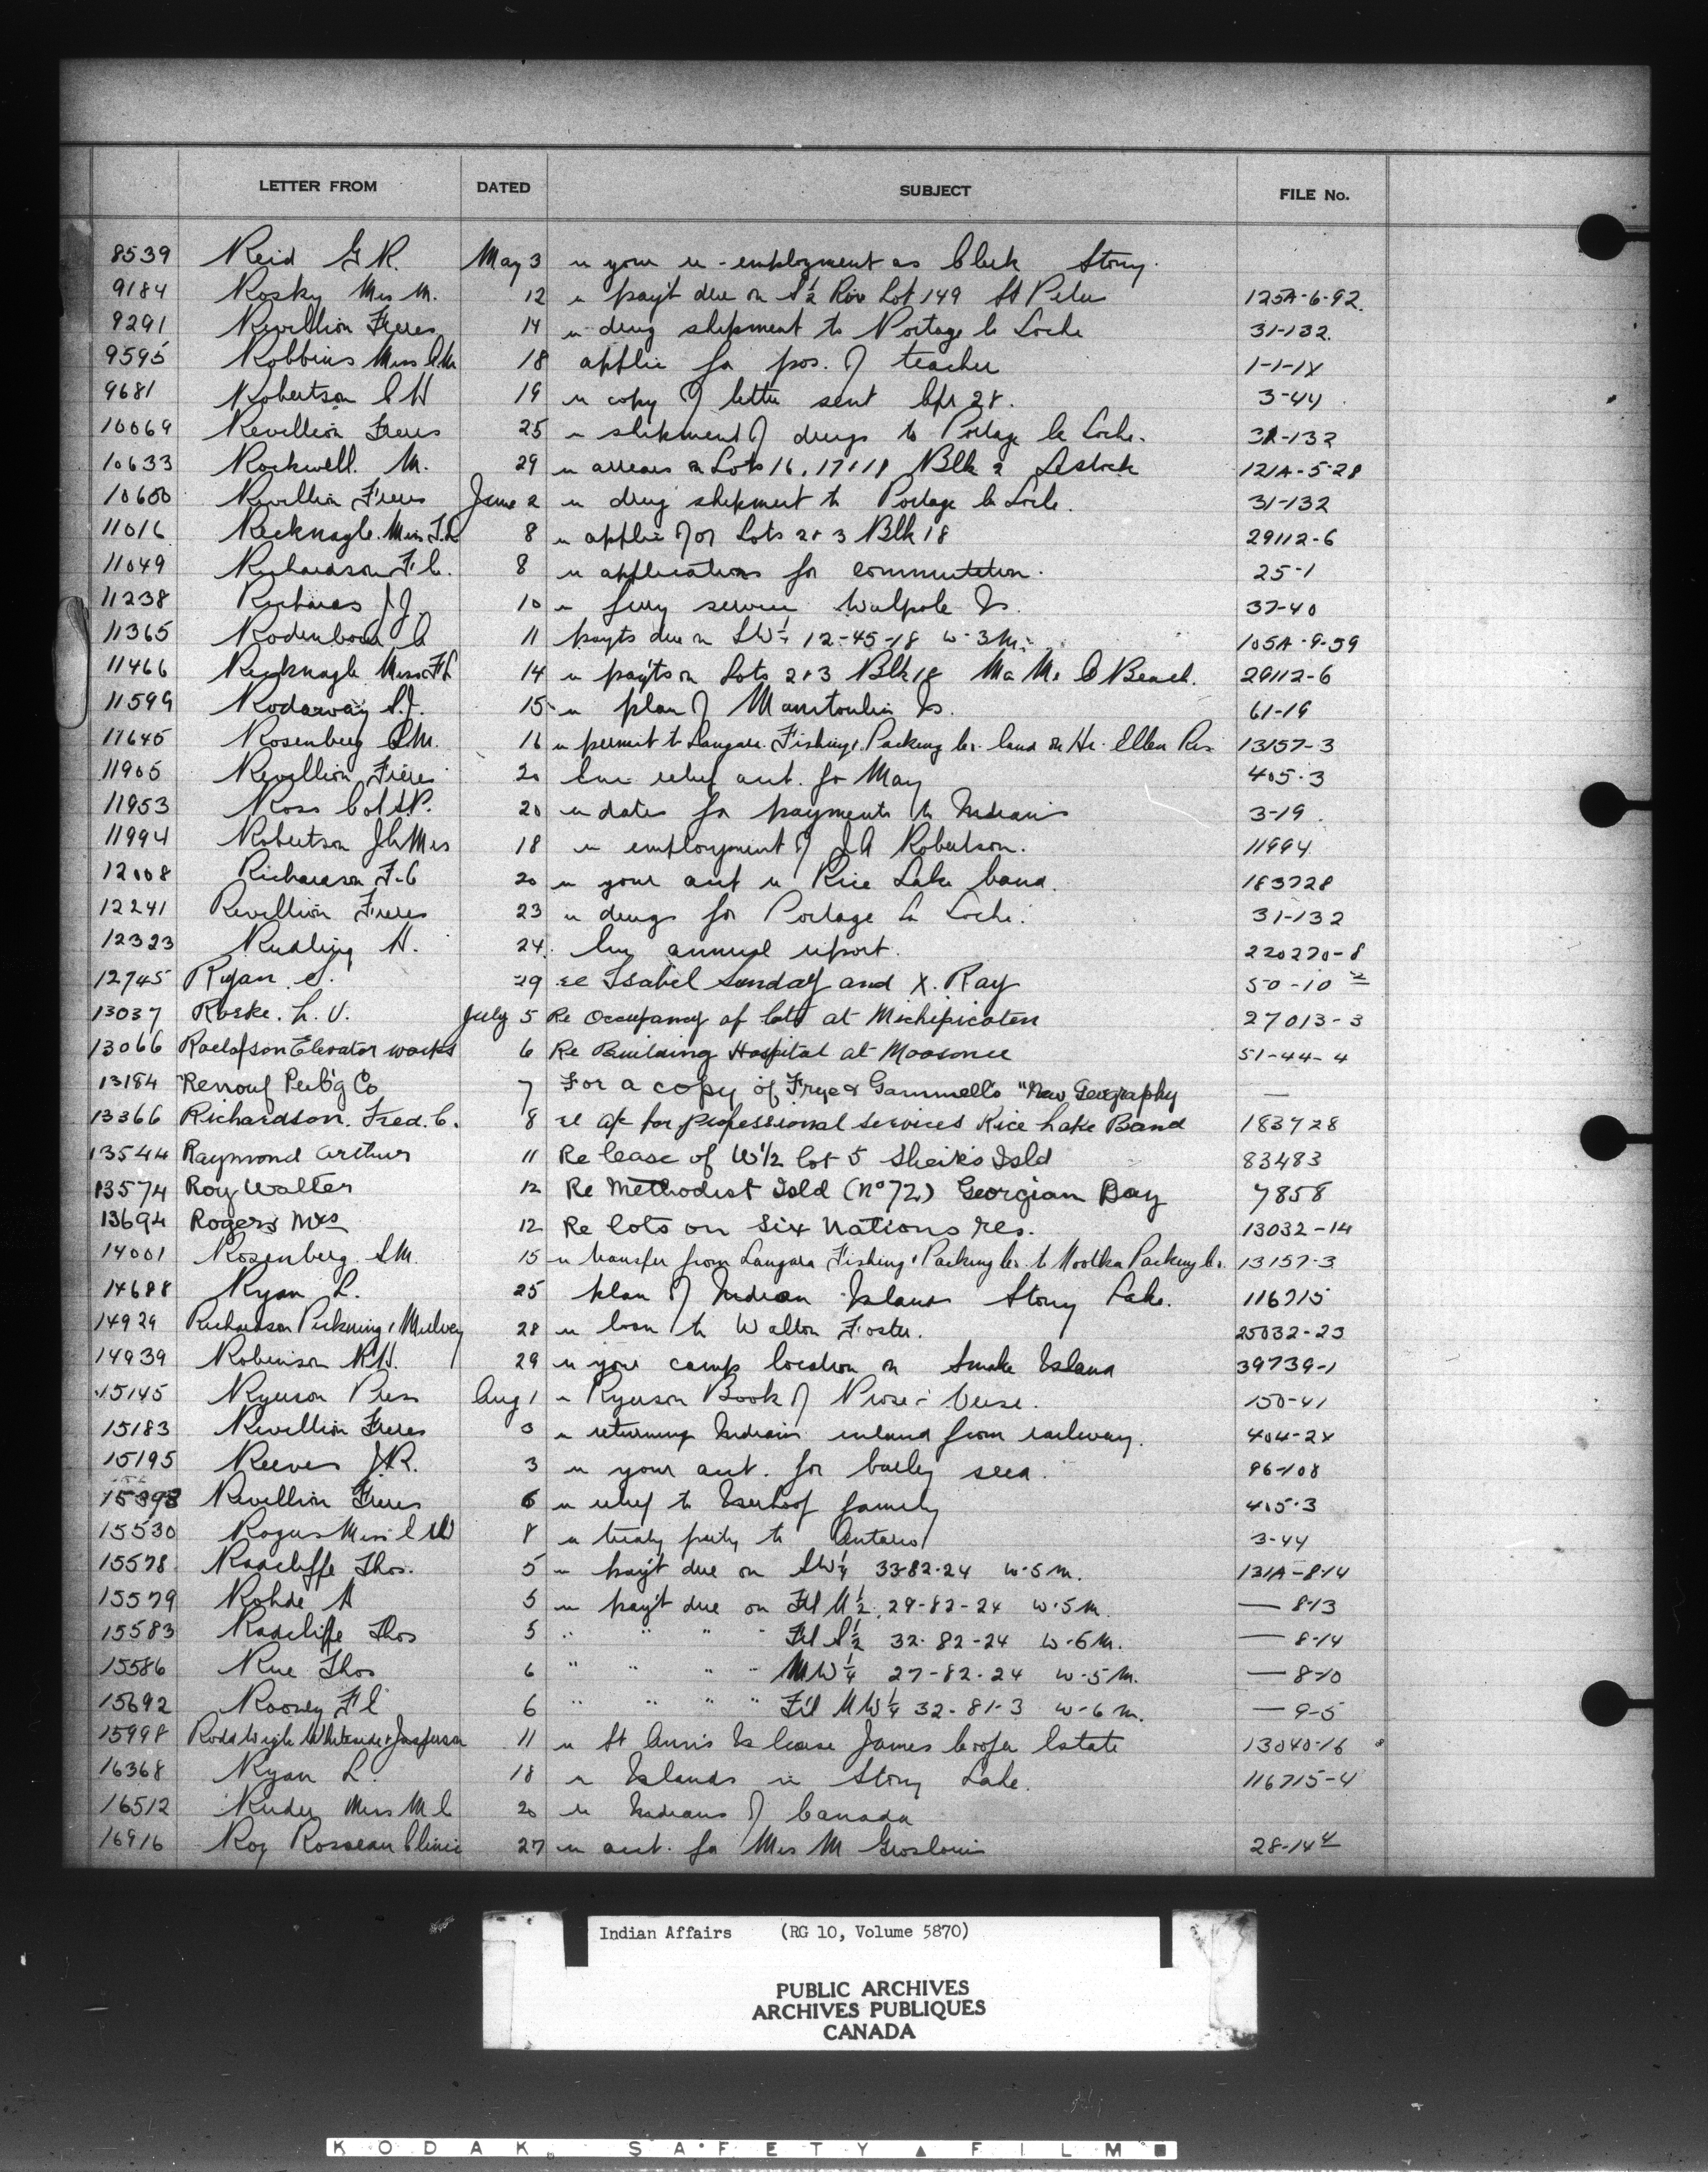 LETTER FROM DATED SUBJECT FILE No.
8539 Reid G R. May 3 re your re-employment as Clerk Stony.
9184 Rosky Mrs M. 12 re pay't due on S½ Riv Lot 149 St Peter 125A-6-92
9291 Revillion Freres 14 re drug shipment to Portage la Loche 31-132.
9595 Robbins Miss C.M. 18 applic for pos. of teacher 1-1-1X
9681 Robertson C H 19 re copy of letter sent Apr 28. 3-44
10069 Revillion Freres 25 re shipment of drugs to Portage la Loche. 31-132
10633 Rockwell. M. 29 re arrears on Lots 16, 17 & 18 Blk 2 121A-5-28
10650 Revillion Freres June 2 re drug shipment to Portage la Loche. 31-132
11016 Recknagle. Miss F.L 8 re applic for Lots 2 & 3 Blk 18 29112-6
11049 Richardson F C. 8 re applications for commutation. 25-1
11238 Richards J J. 10 re ferry service Walpole Is. 37-40
11365 11 payts due on SW¼ 12-45-18 W-3M. 105A-9-59
11466 Recknagle Miss F L 14 re pay'ts on Lots 2 & 3 Blk 18 Ma Me O Beach. 29112-6
11599 Rodaway S.J. 15 re plan of Manitoulin Is. 61-19
11645 Rosenberg S.M. 16 re permit to Langara Fishing & Packing Co. land on Hr. Ellen Res 13157-3
11905 Revillion Freres 20 Enc relief acct. for May 405-3
11953 Ross Col A.P. 20 re dates for payments to Indians 3-19.
11994 Robertson J A Mrs 18 re employment of J A Robertson. 11994
12008 Richardson F.C 20 re your acct re Rice Lake band. 183728
12241 Revillion Freres 23 re drugs for Portage La Loche. 31-132
12323 Rudling H. 24. Enc annual report. 220270-8
12745 Ryan. S. 29 re Isabel Sunday and X. Ray 50-10 2
13037 Roske. L. V. July 5 Re Occupancy of lots at Michipicoten 27013-3
13066 Roelofson Elevator works 6 Re Building Hospital at Moosonee 51-44-4
13184 Renouf Pub'g Co 7 For a copy of Frye & Gammell's "New Geography —
13366 Richardson. Fred. C. 8 re a/c for professional services Rice Lake Band 183728
13544 Raymond Arthur 11 Re lease of W½ lot 5 Sheiks Isld 83483
13574 Roy Walter 12 Re Methodist Isld (No 72) Georgian Bay 7858
13694 Rogers Mrs 12 Re lots on Six Nations res. 13032-14
14001 Rosenberg. S.M. 15 re transfer from Langara Fishing & Packing Co. to Nootka Packing Co. 13157-3
14688 Ryan L. 25 plan of Indian Islands Stony Lake. 116715
14929 Richardson Pickning & Mulvey 28 re loan to Walton Foster. 25032-23
14939 Robinson R H. 29 re your camp location on Smoke Island 39739-1
15145 Ryerson Press Aug 1 re Ryerson Book of Prose & Verse. 150-41
15183 Revillion Freres 3 re returning Indians inland from railway. 404-2X
15195 Reeves J.R. 3 re your acct. for barley seed. 96-108
15393 Revillion Freres 6 re relief to family 405-3
15530 Rogers Miss E W 8 re treaty party to Ontario 3-44
15578 Radcliffe Thos. 5 re pay't due on SW¼ 33-82-24 W-5 M. 131A-8-14
15579 Rohde A 5 re pay't due on Fl N½ 29-82-24 W-5 M. — 8-13
15583 Radcliffe Thos 5 " " " " Fl S½ 32-82-24 W-6 M. — 8-14
15586 Rue Thos 6 " " " " NW¼ 27-82-24 W-5 M. — 8-10
15692 Rooney F C 6 " " " " F'l NW¼ 32-81-3 W-6 M. — 9-5
15998 Rodd Wigle Whiteside & Jasperson 11 re St Anne's Is lease James Cooper Estate 13040-16
16368 Ryan L. 18 re Islands in Stony Lake. 116715-4
16512 Miss M C 20 re Indians of Canada
16916 Roy Rosseau Clinic 27 re acct. for Mrs M Groslouis 28-14 4
Indian Affairs (RG 10, Volume 5870)
PUBLIC ARCHIVES
ARCHIVES PUBLIQUES
CANADA
KODAK SAFETY FILM